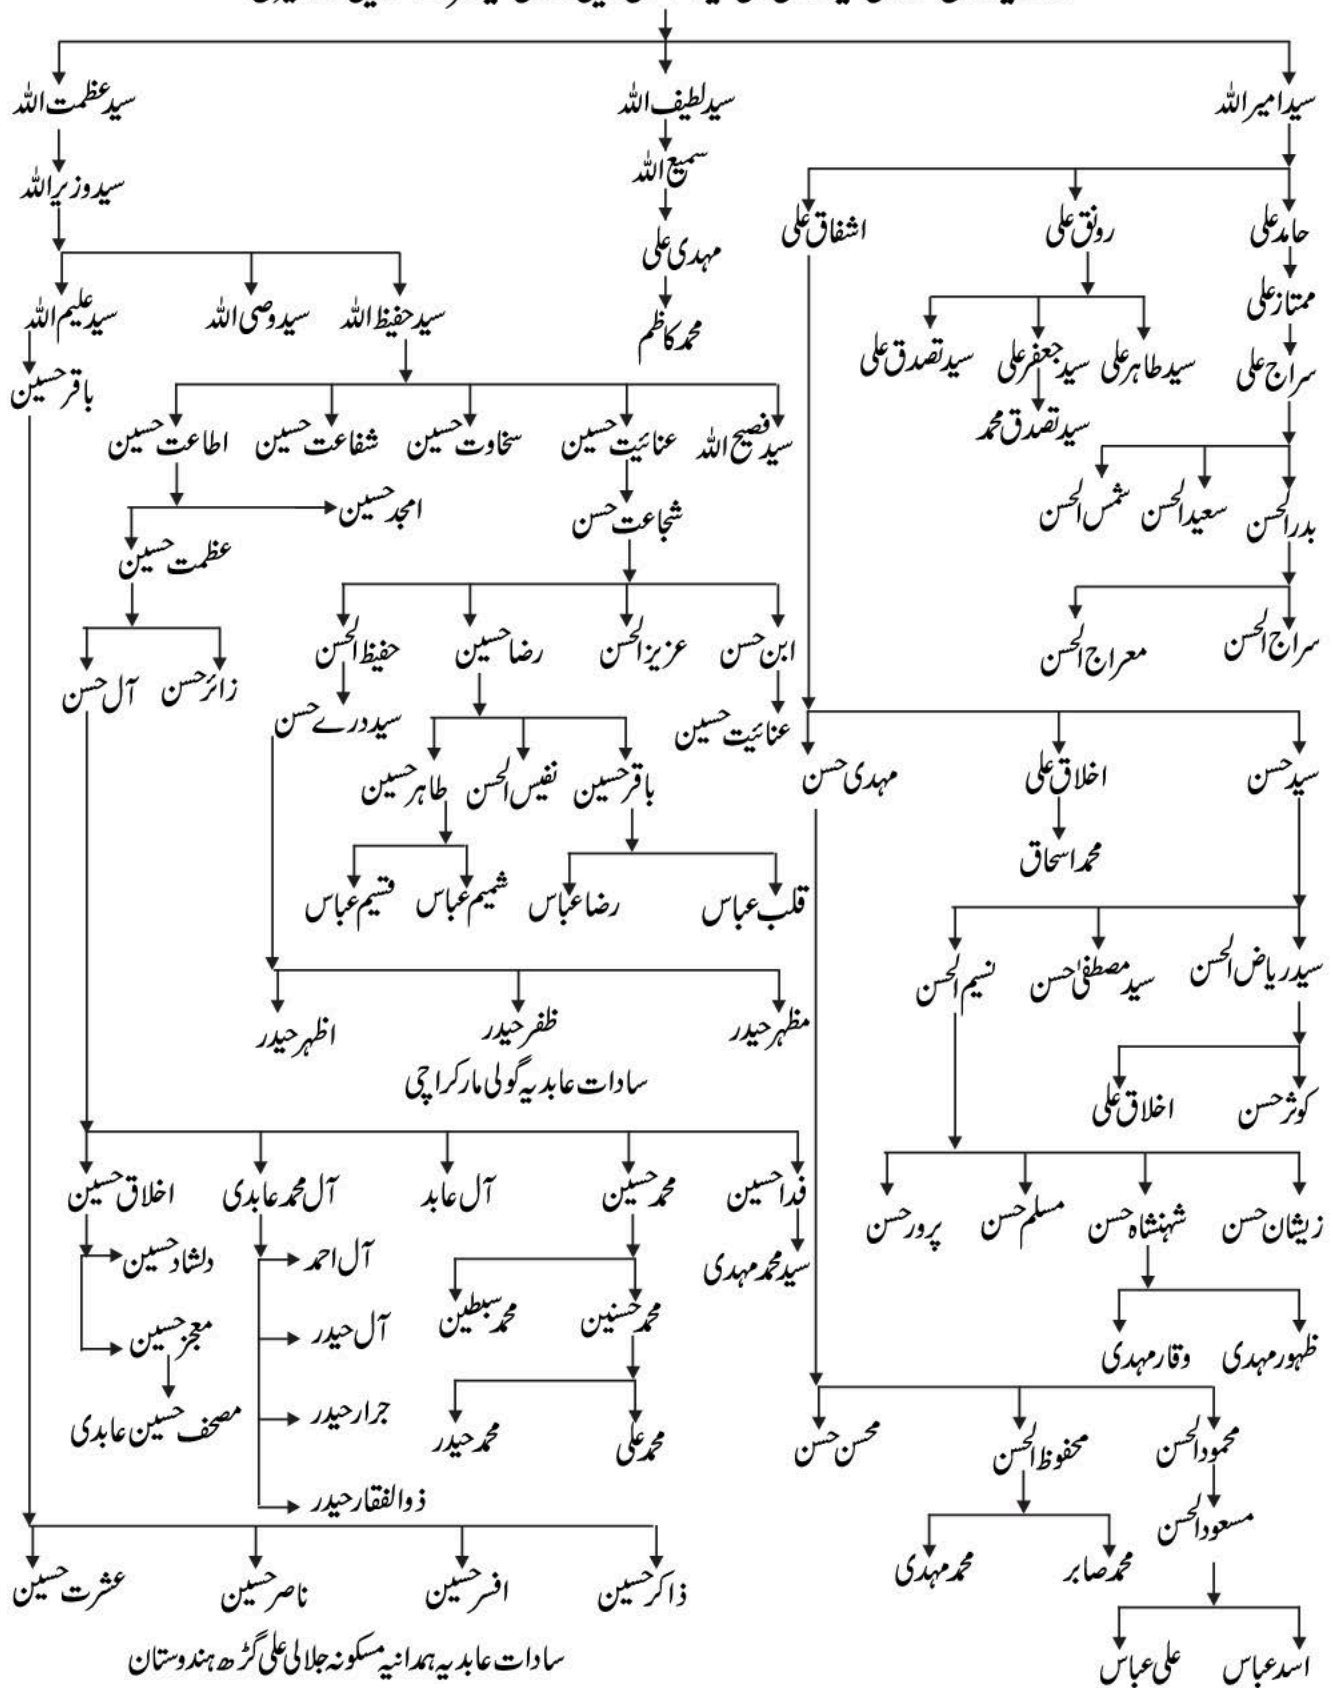 سید امیر اللہ سید لطیف اللہ سید عظمت اللہ
سمیع اللہ
سید وزیر اللہ
حامد علی رونق علی اشفاق علی مہدی علی
ممتاز علی
سید علیم اللہ سید وصی اللہ سید حفیظ اللہ محمد کاظم
سراج علی سید طاہر علی سید جعفر علی سید تصدق علی
باقر حسین
سید تصدق محمد
سید فصیح اللہ عنائیت حسین سخاوت حسین شفاعت حسین اطاعت حسین
بدر الحسن سعید الحسن شمس الحسن شجاعت حسن امجد حسین
عظمت حسین
سراج الحسن معراج الحسن
ابن حسن عزیز الحسن رضا حسین حفیظ الحسن
زائر حسن آل حسن
عنائیت حسین سید درے حسن
سید حسن اخلاق علی مہدی حسن
باقر حسین نفیس الحسن طاہر حسین
محمد اسحاق
قلب عباس رضا عباس شمیم عباس قسیم عباس
سید ریاض الحسن سید مصطفیٰ حسن نسیم الحسن
مظہر حیدر ظفر حیدر اظہر حیدر
سادات عابدیہ گولی مار کراچی
کوثر حسن اخلاق علی
فدا حسین محمد حسین آل عابد آل محمد عابدی اخلاق حسین
زیشان حسن شہنشاہ حسن مسلم حسن پرور حسن
سید محمد مہدی آل احمد دلشاد حسین
محمد حسنین محمد سبطین آل حیدر معجز حسین
ظہور مہدی وقار مہدی
جرار حیدر مصحف حسین عابدی
محمد علی محمد حیدر
محمود الحسن محفوظ الحسن محسن حسن
ذوالفقار حیدر
مسعود الحسن
محمد صابر محمد مہدی
ذاکر حسین افسر حسین ناصر حسین عشرت حسین
اسد عباس علی عباس
سادات عابدیہ ہمدانیہ مسکونہ جلالی علی گڑھ ہندوستان